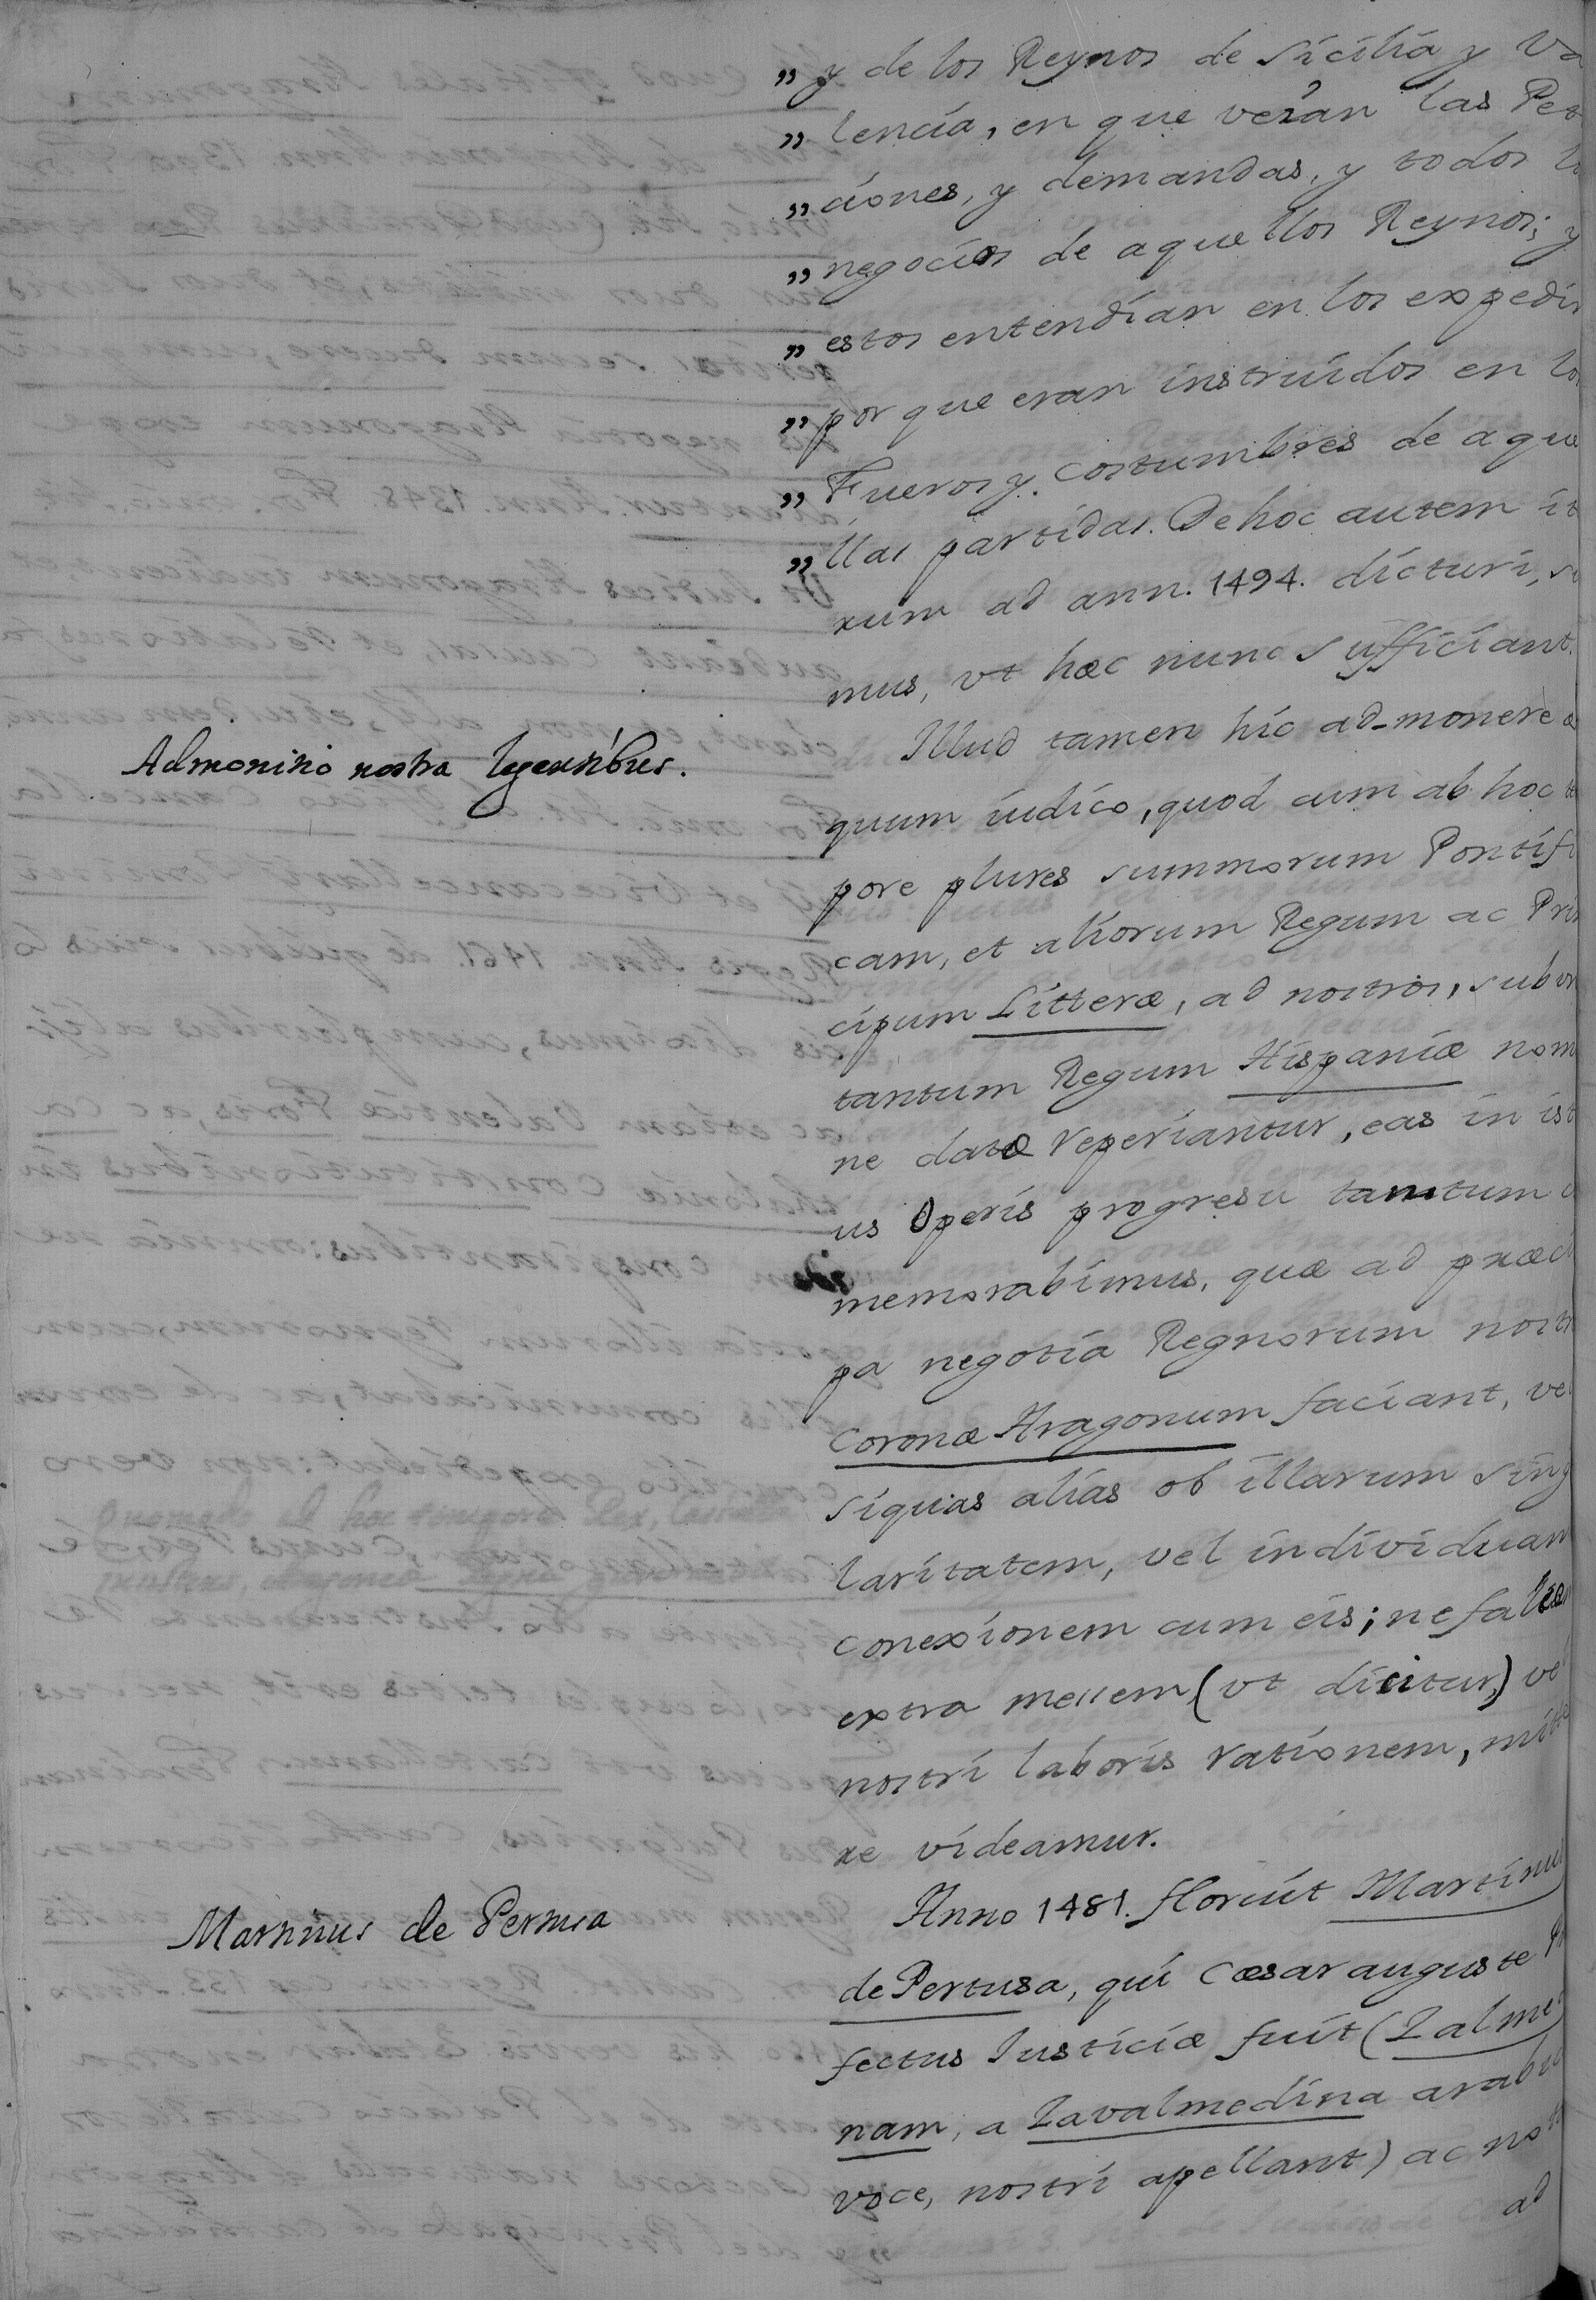 „ y de los Reynos de Sicilia y Va
„ lencia, en que verán las Peti
„ ciones, y demandas, y todos lo
„ negocios de aquellos Reynos; y
„ estos entendían en los expedir
„ por que eran instruídos en lo
„ Fueros y Costumbres de aque
„ llas partidas. De hoc autem ite
rum ad ann. 1494. dicturi, su
mus, vt hæc nunc sufficiant.
Admonitio nostra legentibus.
Illud tamen hic ad-monere æ
quum iudico, quod cum ab hoc tem
pore plures summorum Pontifi
cam, et aliorum Regum ac Prin
cipum Litteræ, ad nostros, sub
tantum Regum Hispaniæ nomi
ne datæ reperiantur, eas in isti
us Operis progresu tantum
memorabimus, quæ ad præci
pa negotia Regnorum nostr
Coronæ Aragonum faciant, vel
siquas alias ob illarum singu
laritatem, vel individuam
conexionem cum eis; ne falcem
extra messem (vt dicitur,) vel
nostri laboris rationem, mitte
re videamur.
Martinus de Pertusa
Anno 1481. floruit Martinus
de Pertusa, qui Cæsarauguste Præ
fectus Iusticiæ fuit (Zalmedi
nam, a Zavalmedina arabi
voce, nostri apellant) ac no
ad